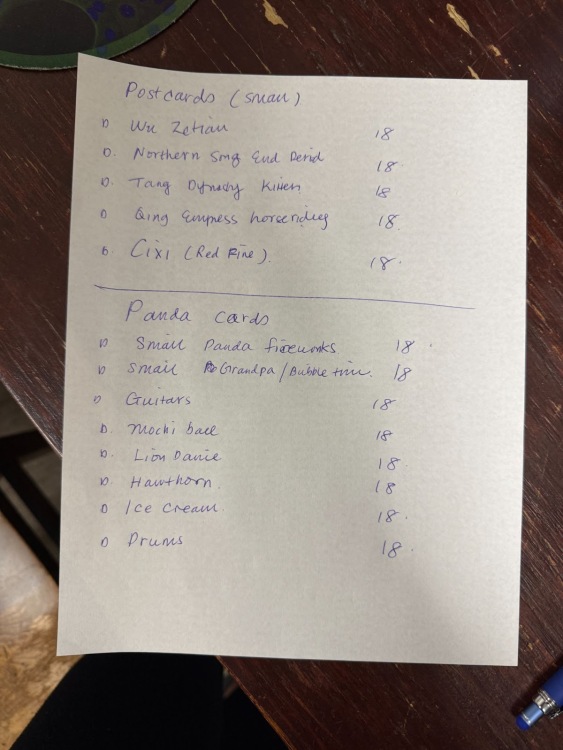 Postcards (small)
Wu Zetian 18
Northern Song End Period 18.
Tang Dynasty Kitten 18
Qing Empress horse riding 18.
Cixi (Red Fire). 18.
Panda cards
Small Panda fireworks 18.
Small Grandpa/Bubble 18
Guitars 18
Mochi ball 18
Lion Dance 18.
Hawthorn. 18
Ice Cream. 18.
Drums 18.